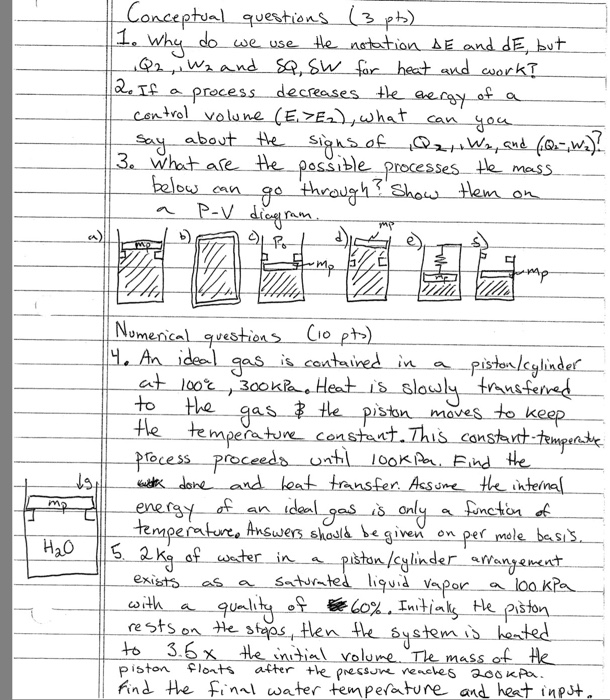 Conceptual questions (3 pts)
1. Why do we use the notation ΔE and dE, but
₁Q₂, ₁W₂ and δQ, δW for heat and work?
2. If a process decreases the energy of a
control volume (E₁>E₂), what can you
say about the signs of ₁Q₂, ₁W₂, and (₁Q₂-₁W₂)?
3. What are the possible processes the mass
below can go through? Show them on
a P-V diagram.
a) b) c) d) e) f)
mp P₀ mp mp mp mp
Numerical questions (10 pts)
4. An ideal gas is contained in a piston/cylinder
at 100°C, 300kPa. Heat is slowly transferred
to the gas & the piston moves to keep
the temperature constant. This constant-temperature
process proceeds until 100kPa. Find the
done and heat transfer. Assume the internal
energy of an ideal gas is only a function of
temperature. Answers should be given on per mole basis.
↓g
mp
H₂O
5. 2kg of water in a piston/cylinder arrangement
exists as a saturated liquid vapor a 100 kPa
with a quality of 60%. Initially the piston
rests on the stops, then the system is heated
to 3.5x the initial volume. The mass of the
piston floats after the pressure reaches 200kPa.
Find the final water temperature and heat input.